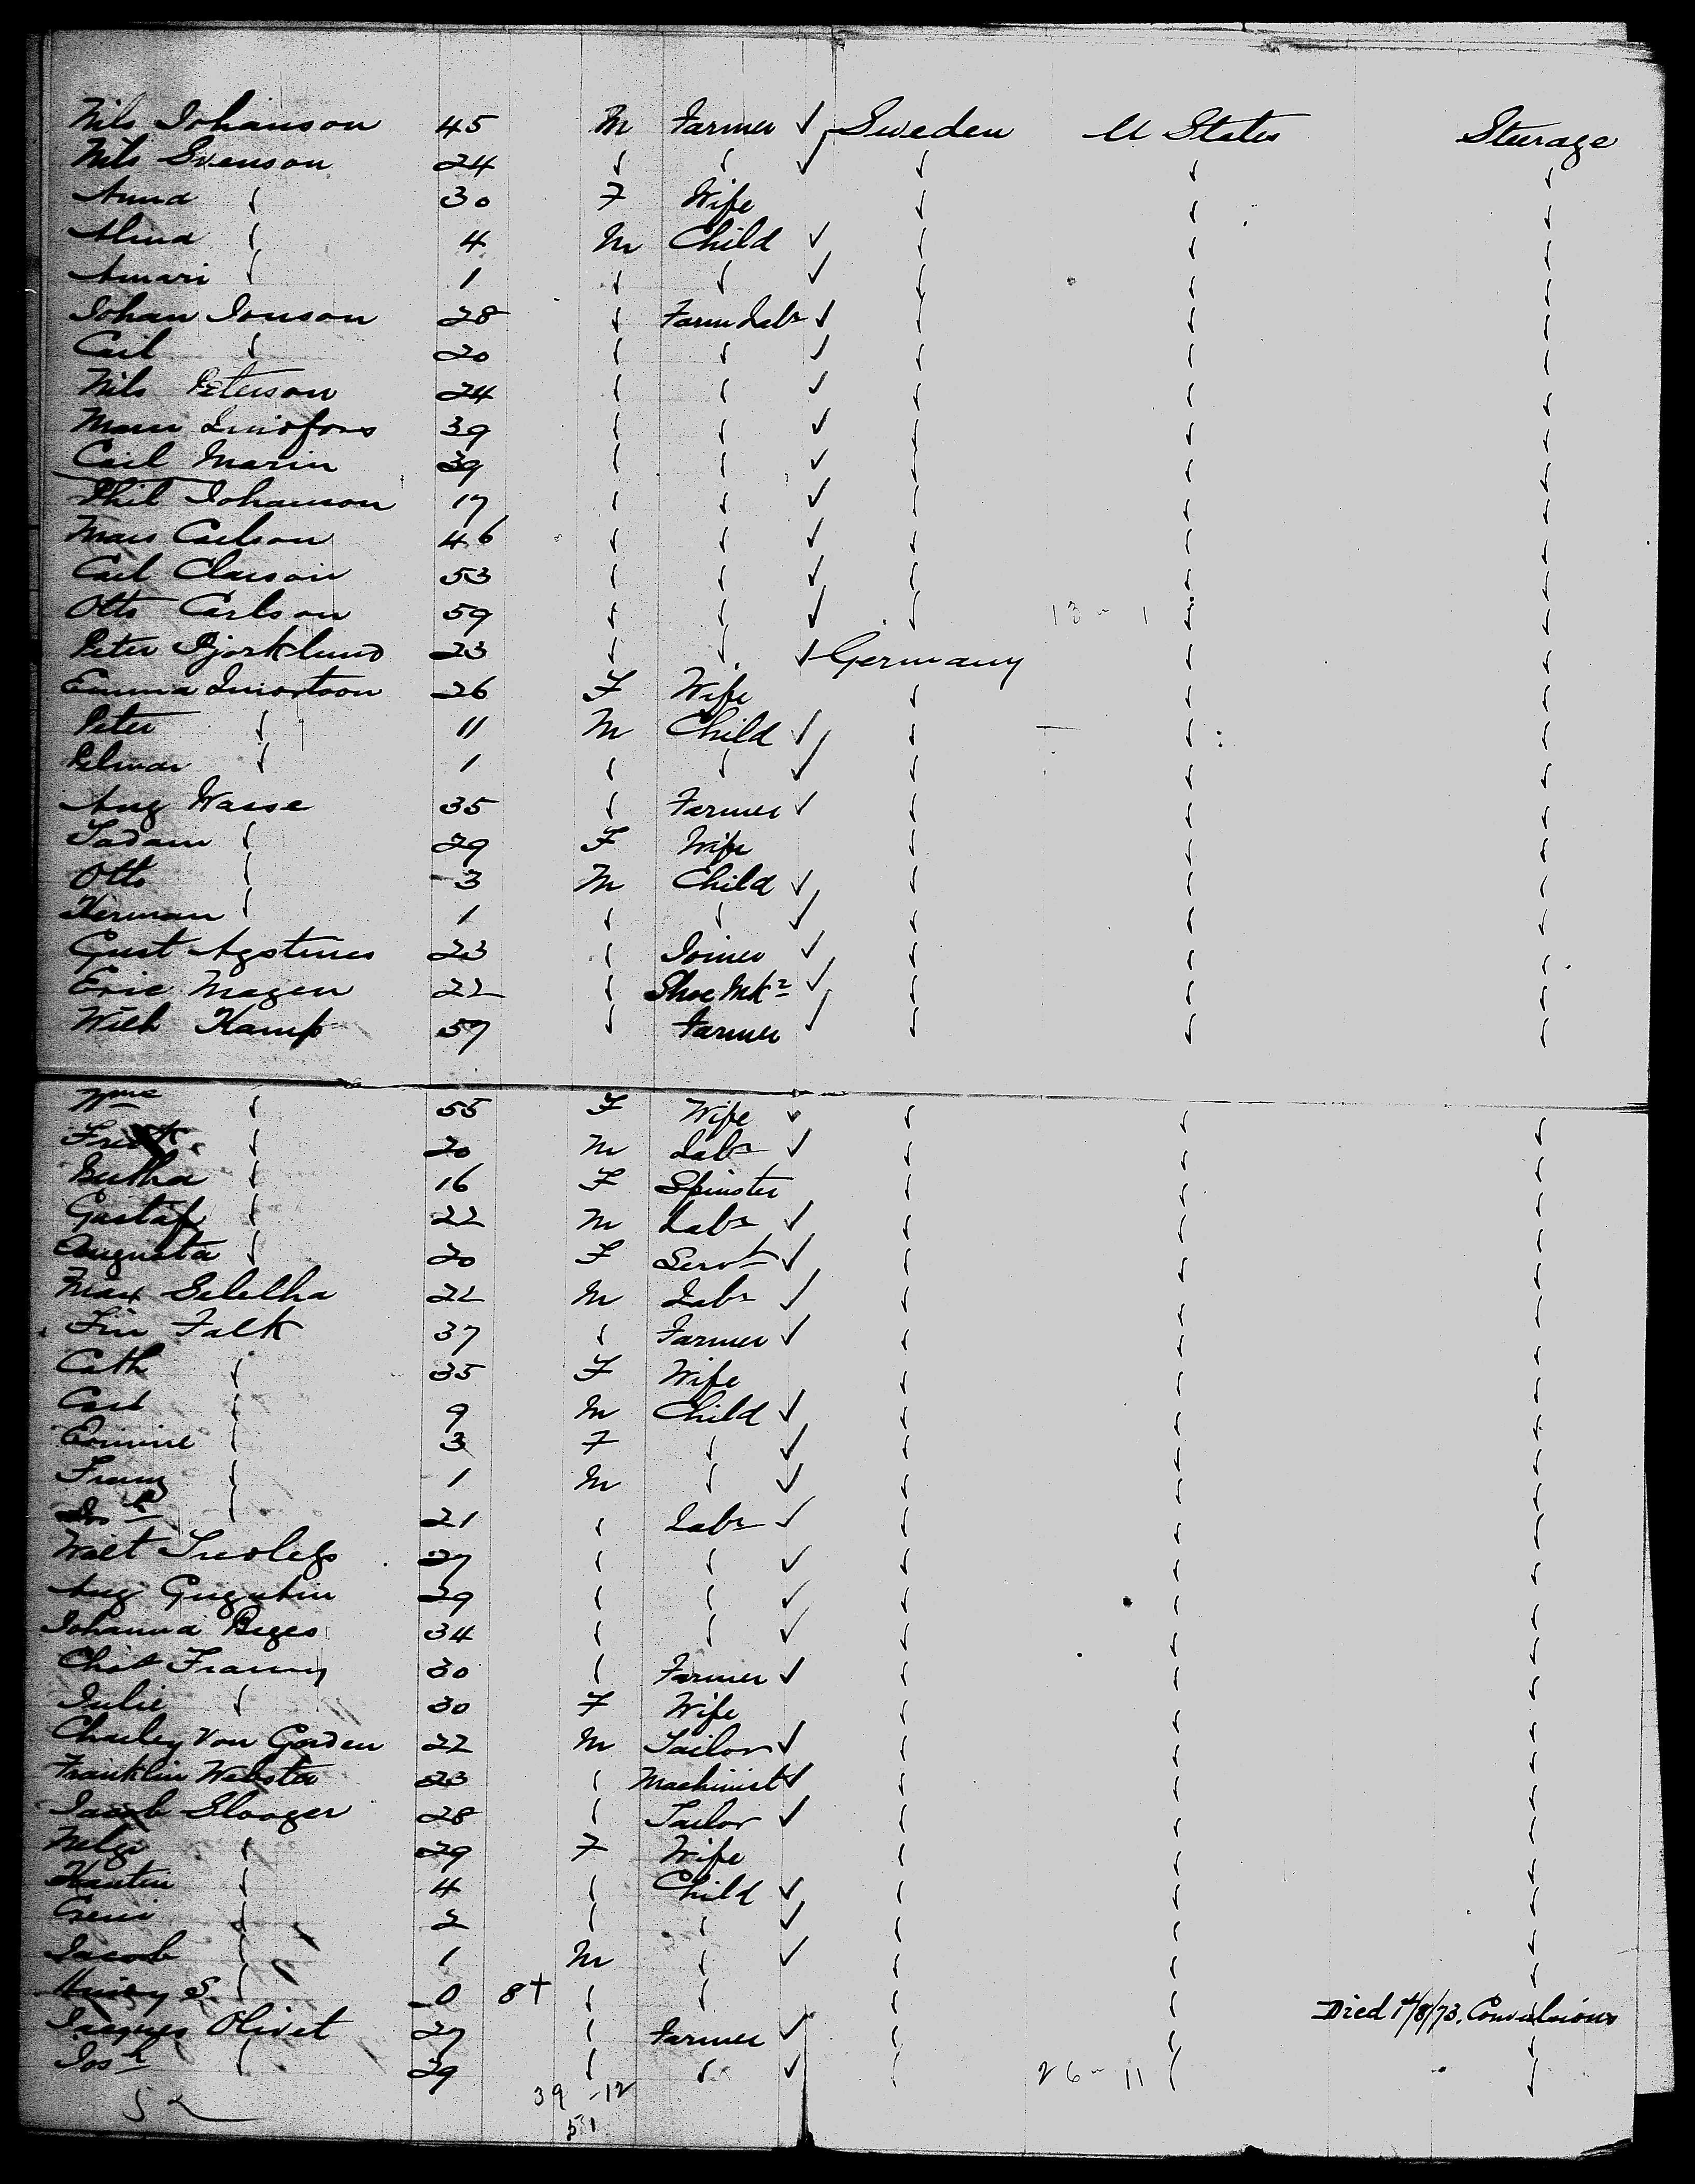 Nils Johanson 45 M Farmer ✓ Sweden U States Steerage
Nils Svenson 24 " " ✓ " " "
Anna " 30 F Wife " " "
Alina " 4 M Child ✓ " " "
Amari " 1 " " ✓ " " "
Johan Jonson 28 " Farm Labr ✓ " " "
Carl " 20 " " ✓ " " "
Nils Peterson 24 " " ✓ " " "
39 " " ✓ " " "
Carl Marin 39 " " ✓ " " "
Phil Johanson 17 " " ✓ " " "
Mars Carlson 46 " " ✓ " " "
Carl Clarson 53 " " ✓ " " "
Otto Carlson 59 " " ✓ " 13 - 1 " "
Peter Bjorklund 23 " " ✓ Germany " "
Emma 26 F Wife " " "
Peter " 11 M Child ✓ " " "
" 1 " " ✓ " " "
Aug Wasse 35 " Farmer ✓ " " "
" 29 F Wife " " "
Otto " 3 M Child ✓ " " "
Herman " 1 " " ✓ " " "
Gust 23 " Joiner ✓ " " "
Eric Magen 22 " Shoe Mkr ✓ " " "
Wilh Kamp 57 " Farmer ✓ " " "
" 55 F Wife " " "
" 20 M Labr ✓ " " "
Bertha " 16 F Spinster " " "
Gustaf " 22 M Labr ✓ " " "
Augusta " 20 F Servt ✓ " " "
Max Selelha 22 M Labr ✓ " " "
Falk 37 " Farmer ✓ " " "
Cath " 35 F Wife " " "
Carl " 9 M Child ✓ " " "
" 3 F " ✓ " " "
Franz " 1 M " ✓ " " "
Josh " 21 " Labr ✓ " " "
27 " " ✓ " " "
Aug 29 " " ✓ " " "
Johanna 34 " " ✓ " " "
30 " Farmer ✓ " " "
Julie " 30 F Wife " " "
Charley Von Gorden 22 M Tailor ✓ " " "
Franklin Webster 23 " Machinist ✓ " " "
Jacob Slooger 28 " Tailor ✓ " " "
" 29 F Wife " " "
" 4 " Child ✓ " " "
" 2 " " ✓ " " "
Jacob " 1 M " ✓ " " "
Henry S. " 0 8+ " " " " " Died 7/8/73. Convulsions
Jacques Olivet 27 " Farmer ✓ " " "
Josh " 29 " " ✓ " 26 - 11 " "
52 39 - 12
51